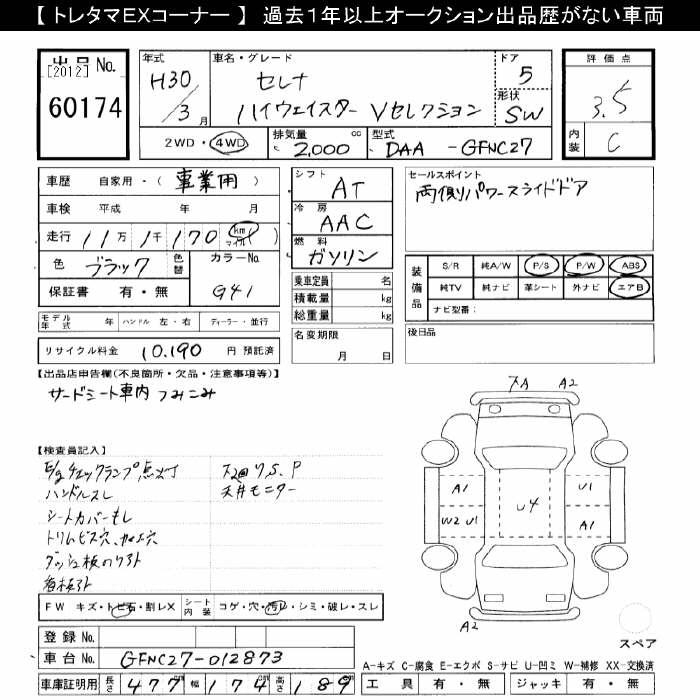 【 トレタマEXコーナー 】 過去1年以上オークション出品歴がない車両
出品 No.
[2012]
60174
年式
H30
/3月
車名・グレード
セレナ
ハイウェイスター Vセレクション
ドア
5
形状
SW
評価点
3.5
内装
C
2WD・4WD
排気量
2,000 cc
型式
DAA -GFNC27
車歴 自家用・(事業用)
車検 平成 年 月
走行 11万 1千 170 km マイル
色 ブラック 色替 カラーNo. G41
保証書 有・無
シフト
AT
冷房
AAC
燃料
ガソリン
乗車定員 名
積載量 kg
総重量 kg
セールスポイント
両側パワースライドドア
装備品
S/R 純A/W P/S P/W ABS
純TV 純ナビ 革シート 外ナビ エアB
ナビ型番:
モデル年式 年 ハンドル 左・右 ディーラー・並行
名変期限
月 日
後日品
リサイクル料金 10,190 円 預託済
【出品店申告欄(不良箇所・欠品・注意事項等)】
サードシート車内つみこみ
【検査員記入】
E/gチェックランプ点灯
ハンドルスレ
シートカバーもし
トリムビス穴
ダッシュ板のりあと
天井モニター
A2
A1
U1
U4
W2 U1
A1
A2
スペア
FW キズ・トビ石・割レX
シート内装 コゲ・穴・汚レ・シミ・破レ・スレ
登録 No.
車台 No. GFNC27-012873
車庫証明用 長さ 477 幅 174 高さ 189
A-キズ C-腐食 E-エクボ S-サビ U-凹ミ W-補修 XX-交換済
工具 有・無 ジャッキ 有・無